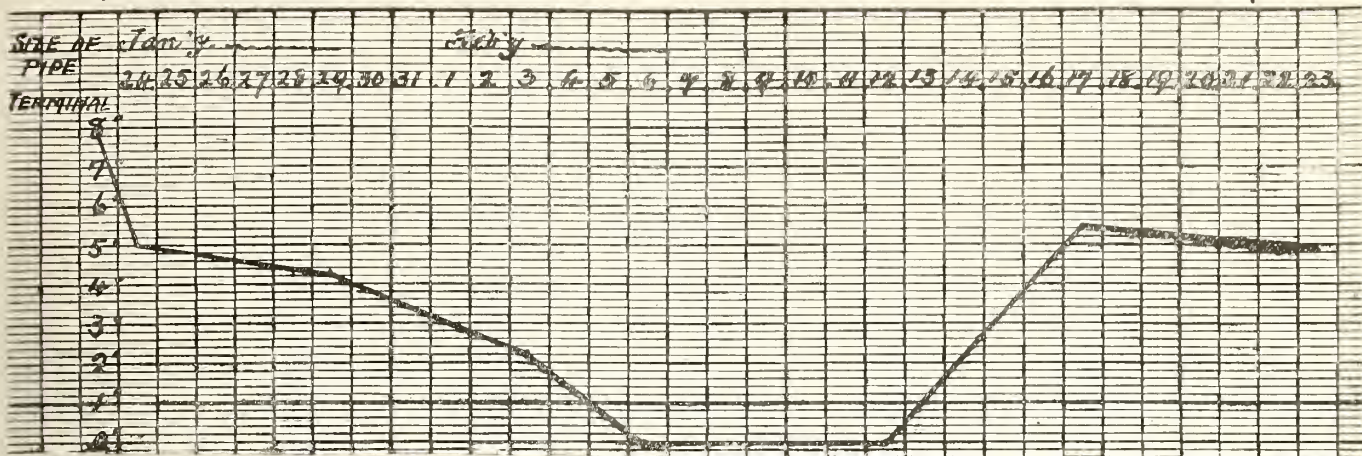 SIZE OF PIPE TERMINAL
Jan'y. Feb'y
24 25 26 27 28 29 30 31 1 2 3 4 5 6 7 8 9 10 11 12 13 14 15 16 17 18 19 20 21 22 23
8"
7"
6"
5"
4"
3"
2"
1"
0"